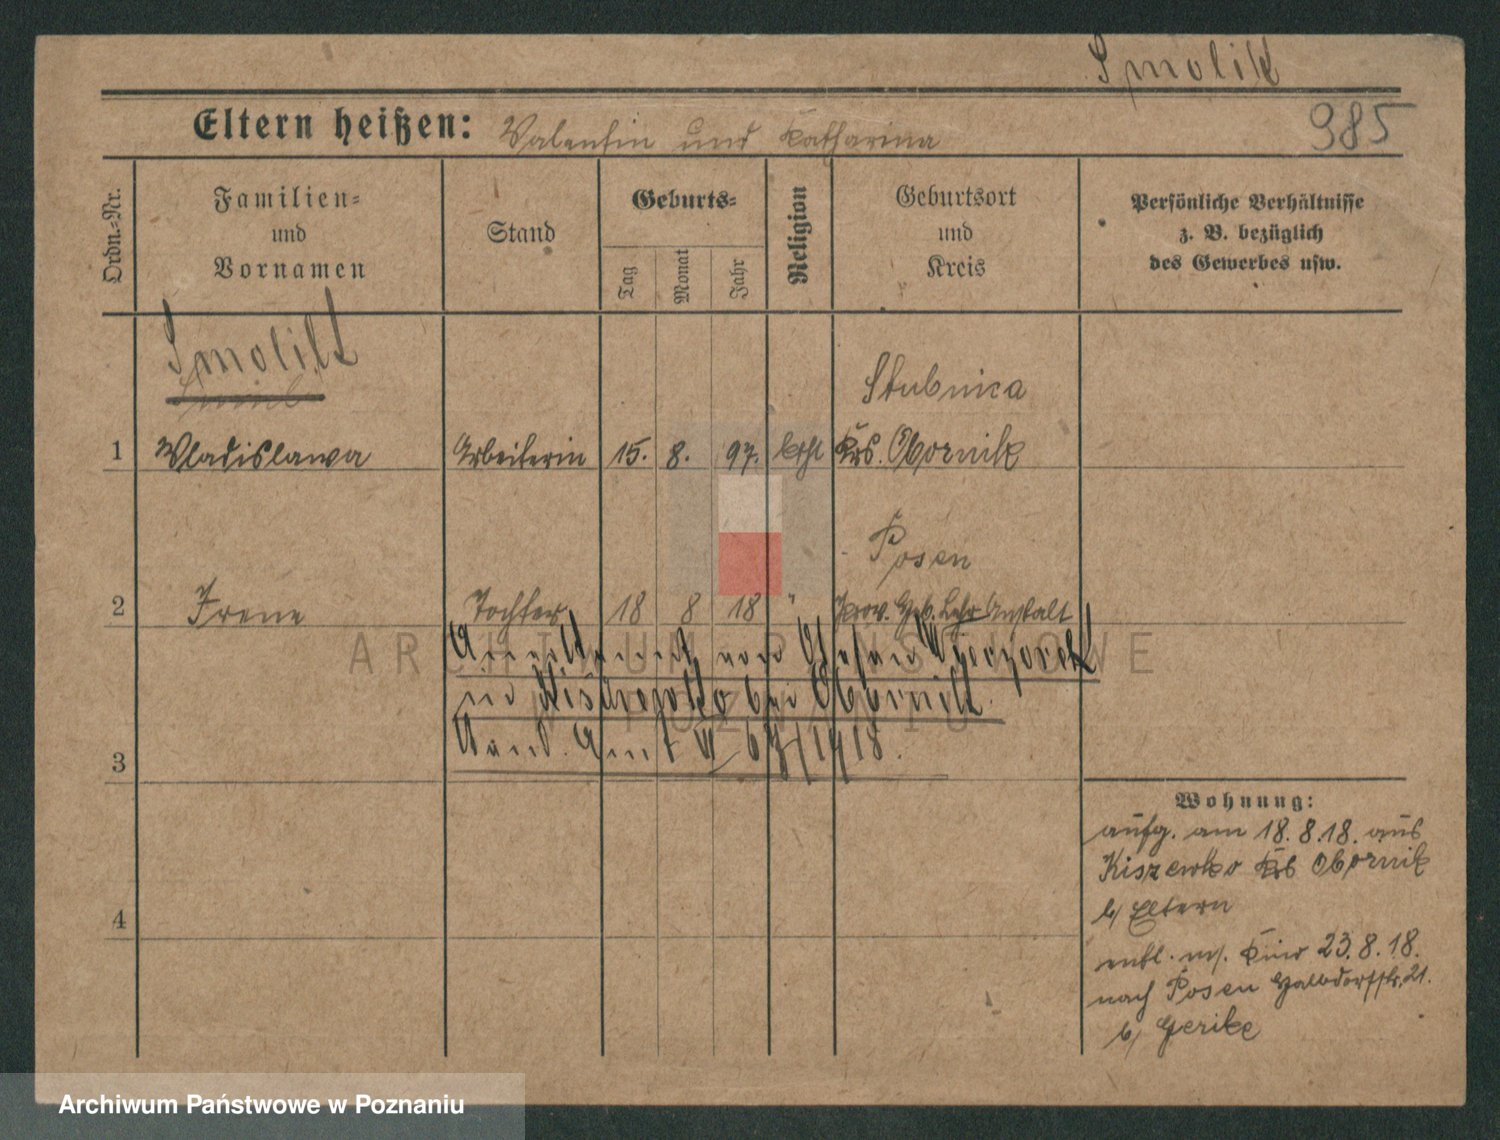 Smolik
985
Eltern heißen: Valentin und Katharina
Ordn.=Nr.
Familien=
und
Vornamen
Stand
Geburts=
Tag
Monat
Jahr
Religion
Geburtsort
und
Kreis
Persönliche Verhältnisse
z. B. bezüglich
des Gewerbes usw.
Smolik
Stubnica
1 Wladislawa Arbeiterin 15. 8. 97. kath Krs. Obornik
Posen
2 Irene Tochter 18 8 18 " Prov. Heb. Lehr Anstalt
ARCHIWUM PAŃSTWOWE
W POZNANIU
anerkannt von
in bei Obornik.
Stand. Amt
3
4
Wohnung:
aufg. am 18.8.18. aus
Kiszewko Krs Obornik
b/ Eltern
entl. m/. Kind 23.8.18.
nach Posen Halbdorfstr. 21.
b/ Gerike
Archiwum Państwowe w Poznaniu